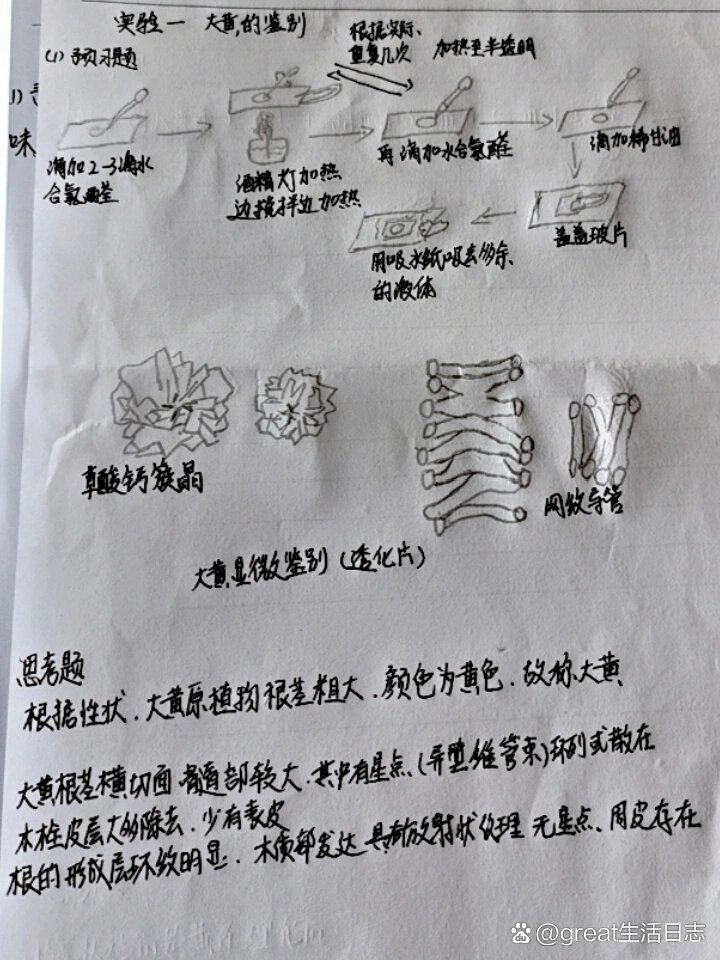 实验一 大黄的鉴别
(1) 预习题
根据实际、
重复几次
加热至半透明
味
滴加2-3滴水
合氯醛
酒精灯加热
边搅拌边加热
再滴加水合氯醛
滴加稀甘油
盖盖玻片
用吸水纸吸去多余
的液体
草酸钙簇晶
网纹导管
大黄显微鉴别(透化片)
思考题
根据性状、大黄原植物根茎粗大、颜色为黄色、故称大黄
大黄根茎横切面 髓部较大、其中有星点(异型维管束)环列或散在
木栓皮层大多除去、少有表皮
根的形成层环纹明显、木质部发达 具放射状纹理 无星点、周皮存在
@great生活日志